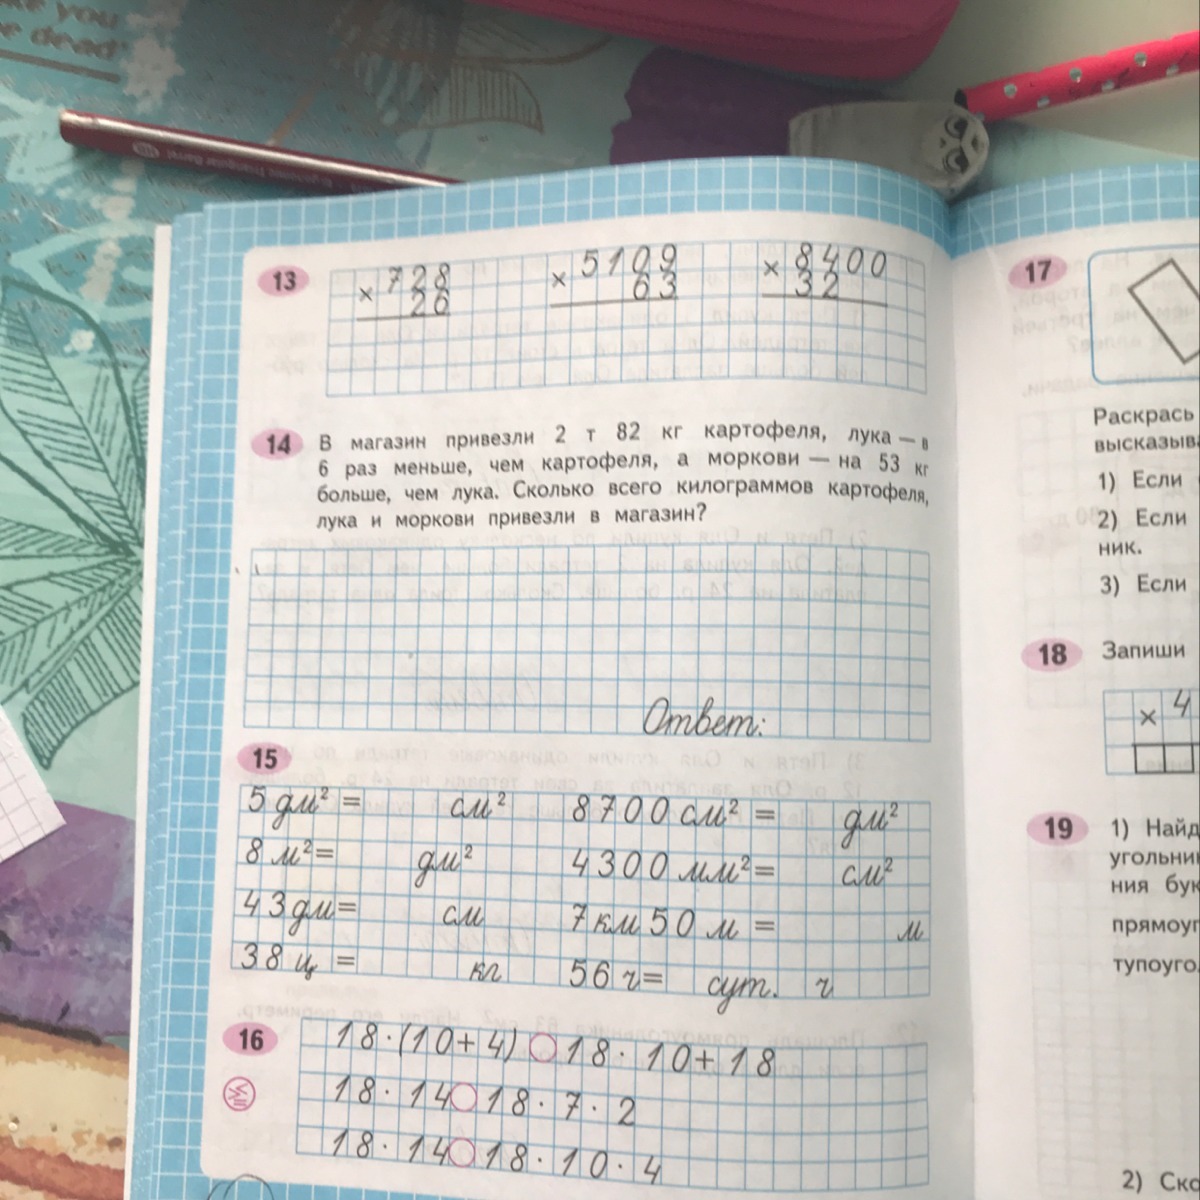 ke you
e dead
13
× 728
26
× 5109
63
× 8400
32
14 В магазин привезли 2 т 82 кг картофеля, лука — в
6 раз меньше, чем картофеля, а моркови — на 53 кг
больше, чем лука. Сколько всего килограммов картофеля,
лука и моркови привезли в магазин?
Ответ:
15
5 дм² = см² 8700 см² = дм²
8 м² = дм² 4300 мм² = см²
43 дм = см 7 км 50 м = м
38 ц = кг 56 ч = сут. ч
16
18 · (10 + 4) ○ 18 · 10 + 18
18 · 14 ○ 18 · 7 · 2
18 · 14 ○ 18 · 10 · 4
17
Раскрась
высказыв
1) Если
2) Если
ник.
3) Если
18 Запиши
× 4
19 1) Найд
угольни
ния бук
прямоуг
тупоуго
2) Ско